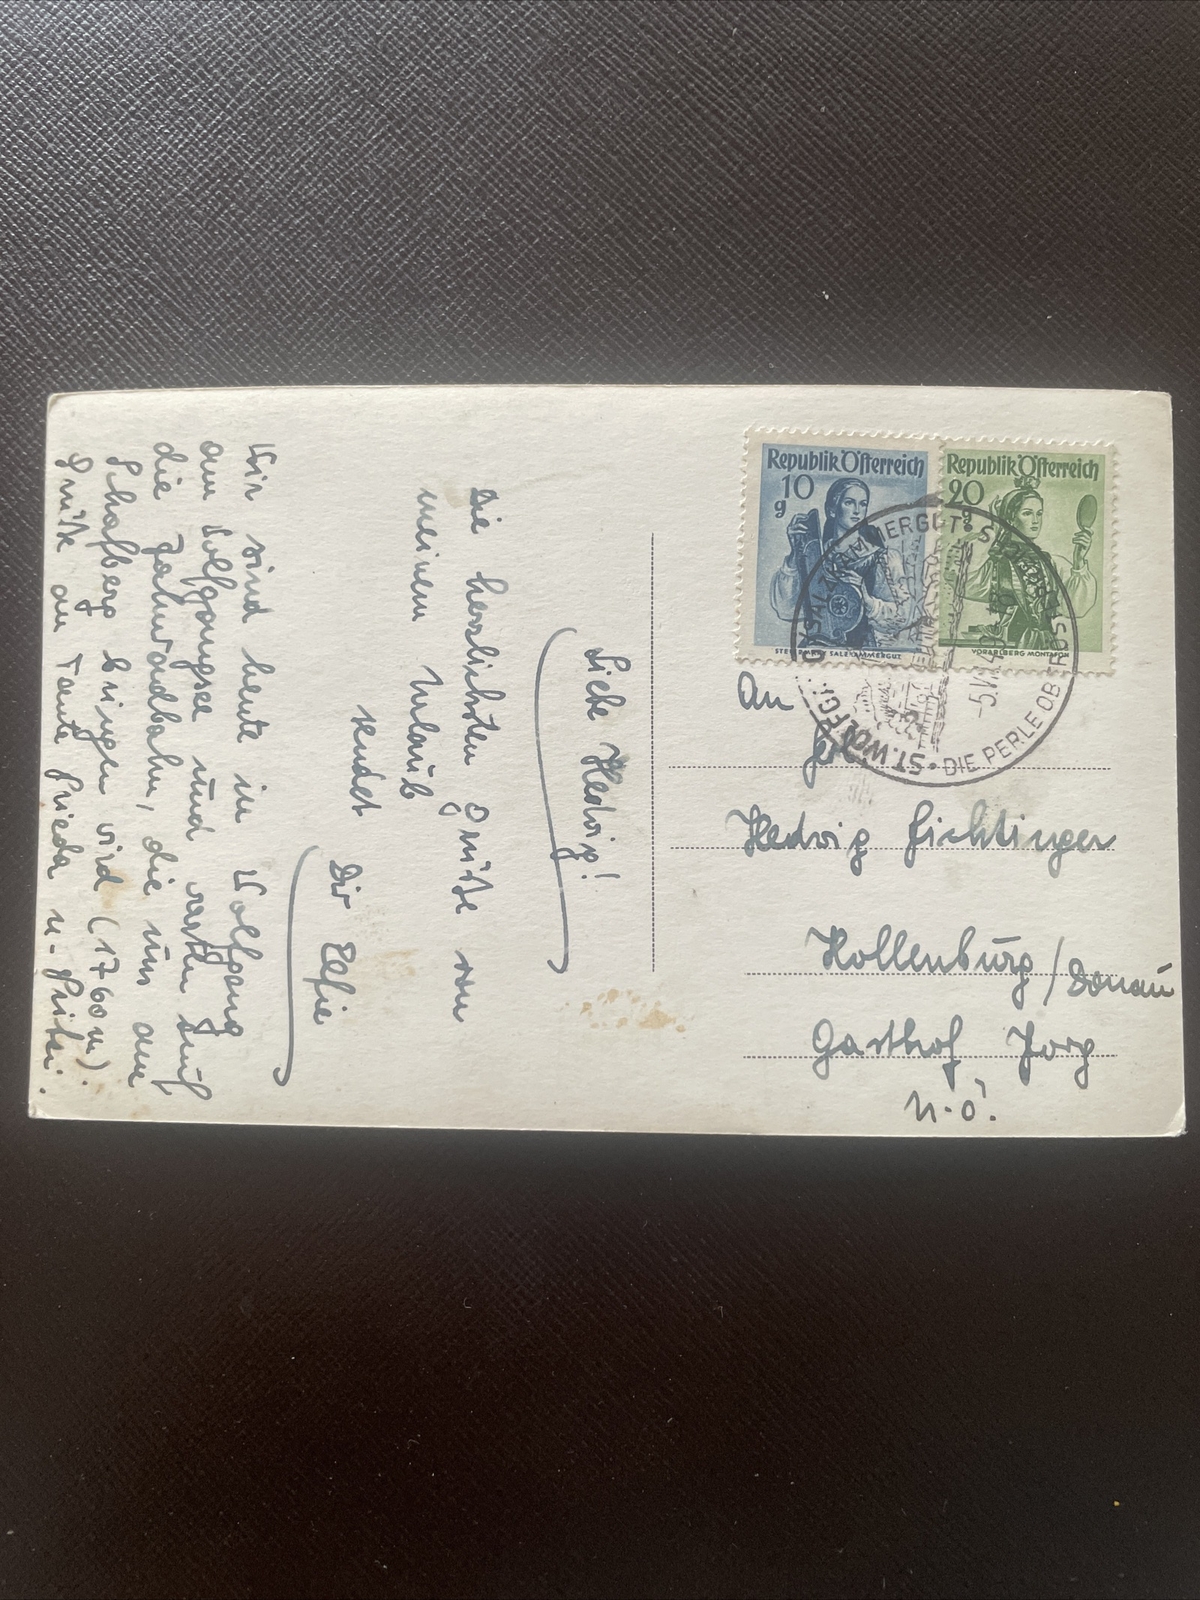 Liebe Hedwig!
Die herzlichsten Grüße von
meinem Urlaub
sendet
Dir Elfie
Wir sind heute in Wolfgang
am Wolfgangsee und warten auf
die Zahnradbahn, die uns am
Schafberg bringen wird (1760 m).
Grüße an Tante Frieda u.
Republik Österreich
10
g
STEIERMARK SALZKAMMERGUT
Republik Österreich
20
g
VORARLBERG MONTAFON
ST. WOLFG
SALZKAMMERGUT
DIE PERLE OBERÖST
An
Frl.
Hedwig Lichtinger
Hollenburg / Donau
Gasthof
N.Ö.